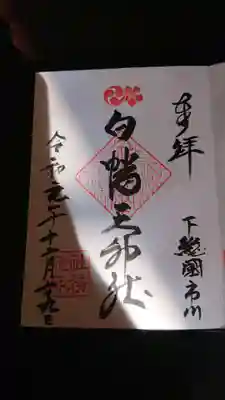 奉拝
下総國市川
白幡天神社
令和元年十二月廿九日